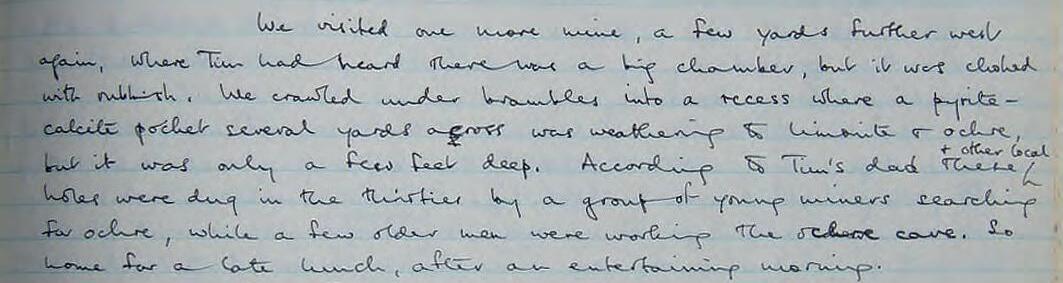 We visited one more mine, a few yards further west
again, where Tim had heard there was a big chamber, but it was choked
with rubbish. We crawled under brambles into a recess where a pyrite-
calcite pocket several yards across was weathering to limonite & ochre,
but it was only a few feet deep. According to Tim's dad these
+ other local
holes were dug in the thirties by a group of young miners searching
for ochre, while a few older men were working the ochre cave. So
home for a late lunch, after an entertaining morning.